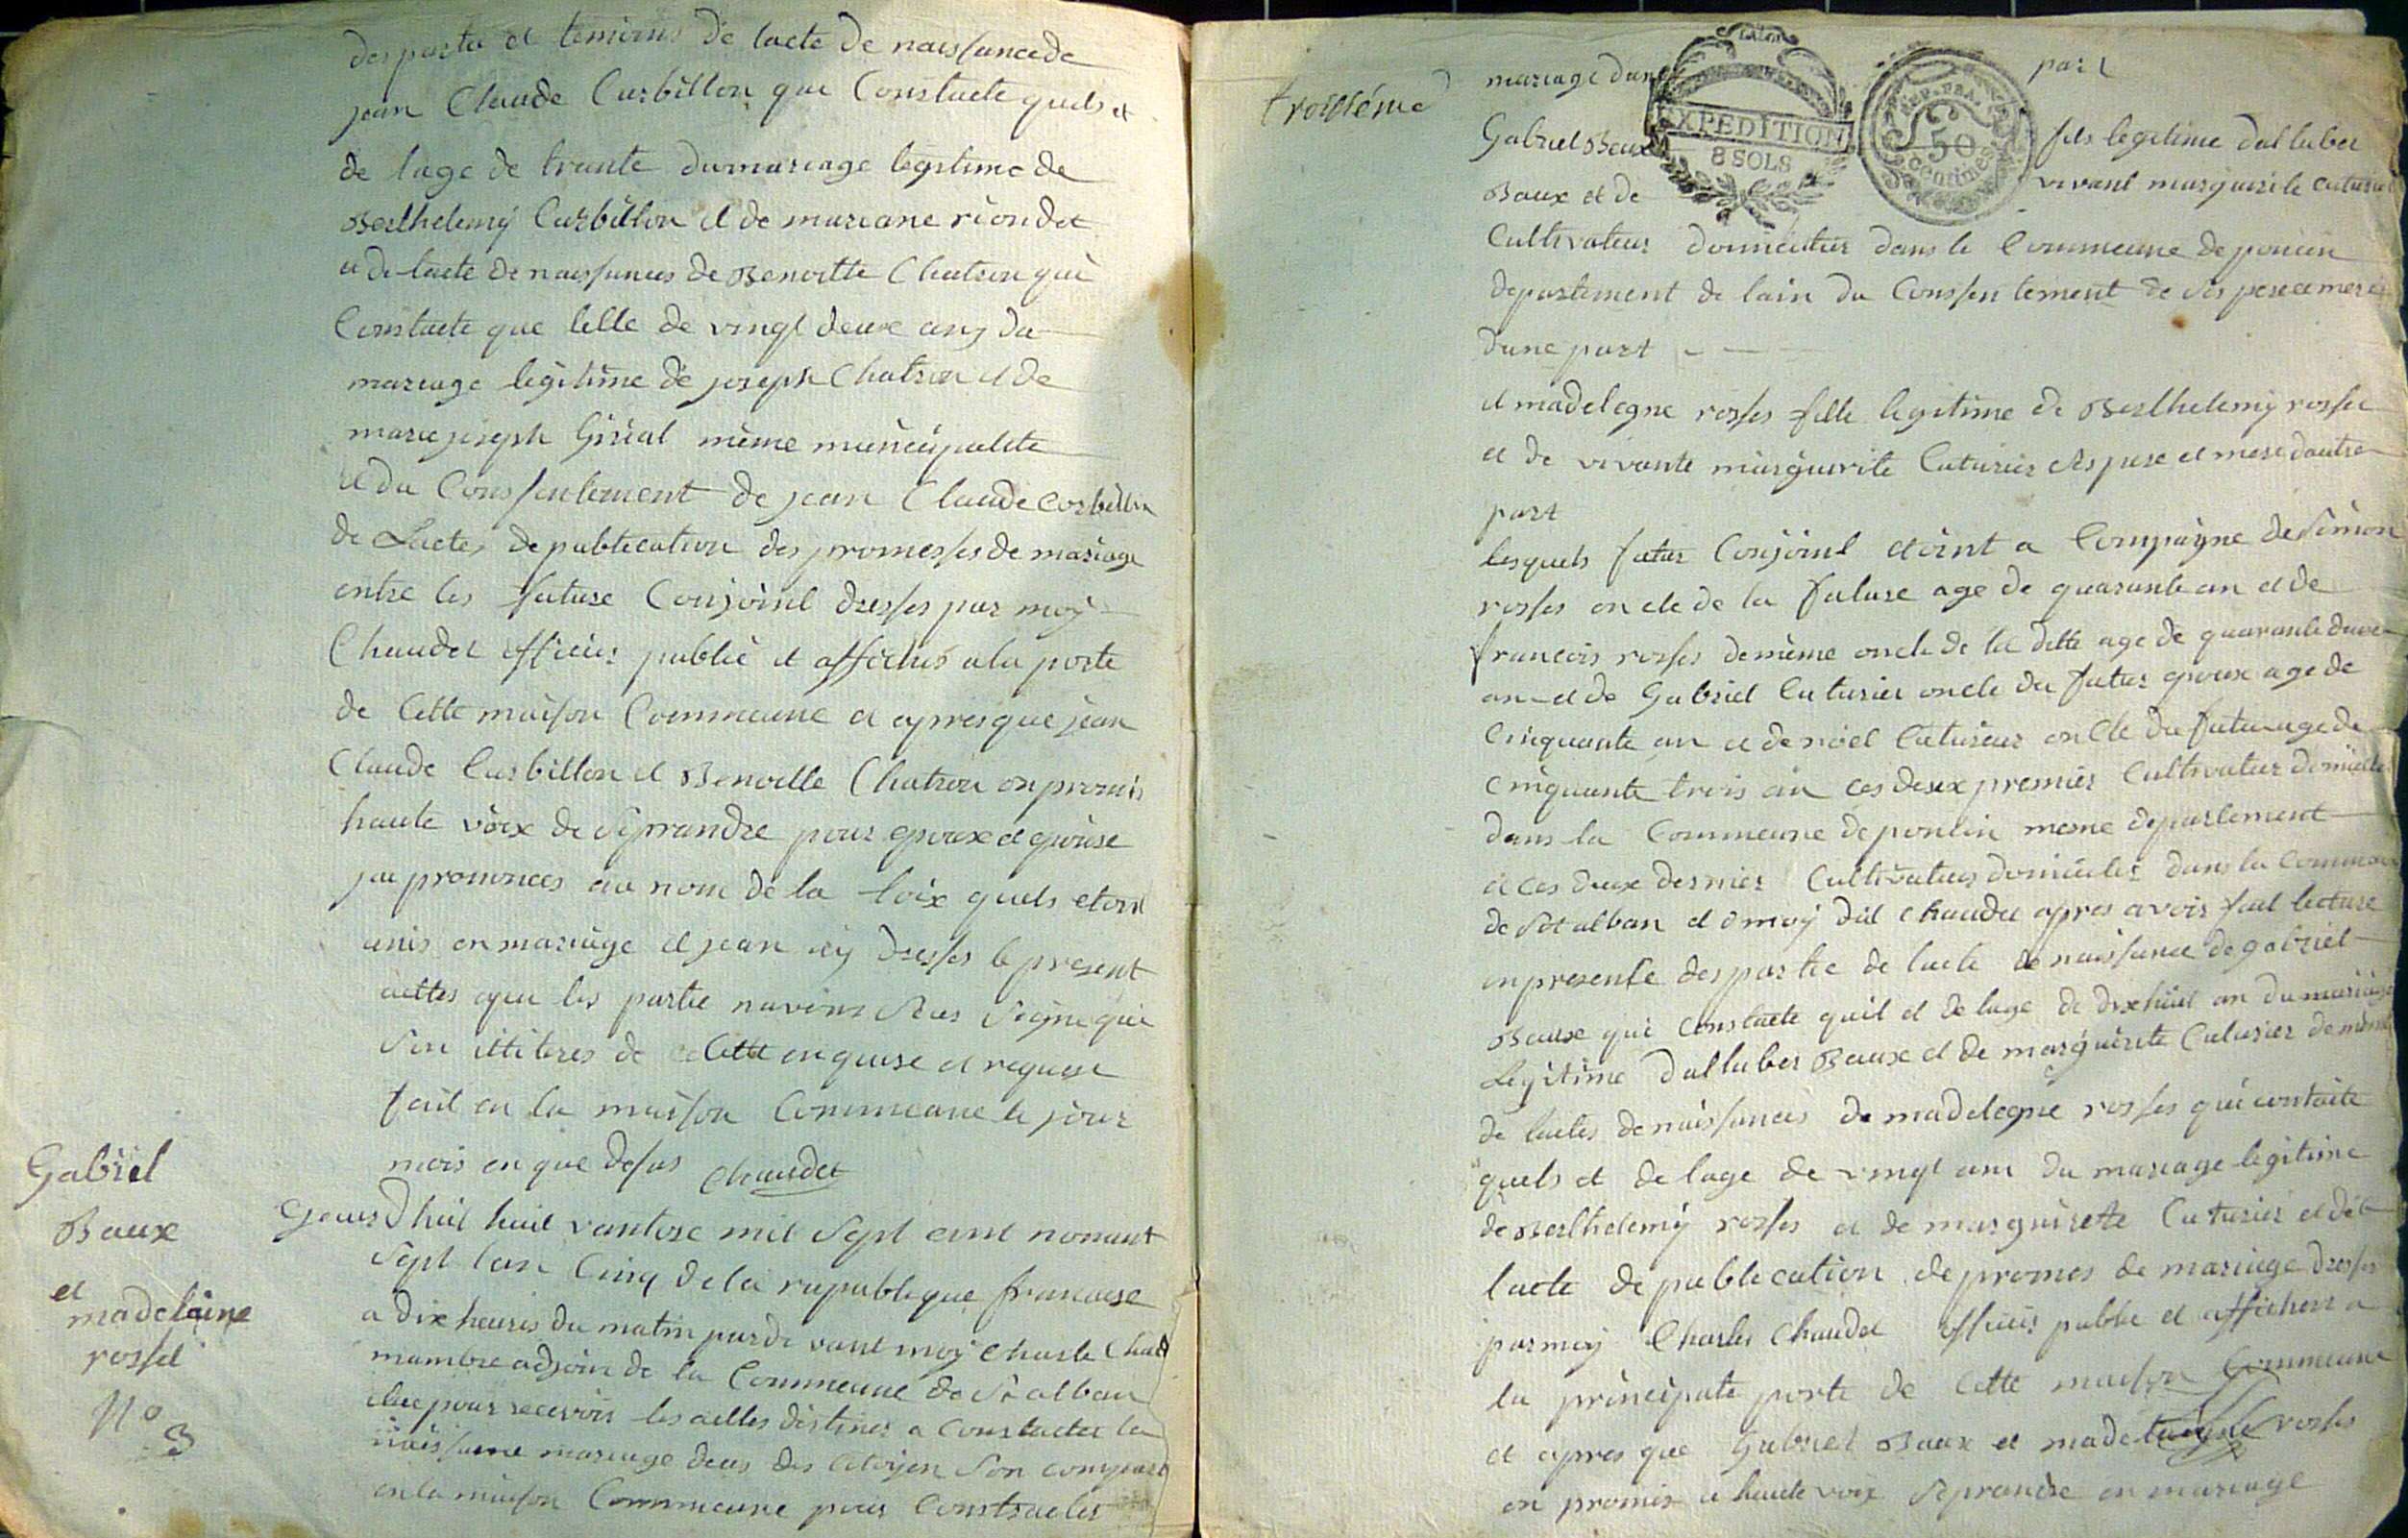 des partie et temoins de lacte de naissance de
jean Claude Curbillon qui Constacte quels et
de lage de trante du mariage legitime de
Berthelemy Curbillon et de mariane riondet
et de lacte de naissances de Benoitte Chatron qui
Constacte que lelle de vingt deux ans du
mariage legitime de joseph Chatron et de
marie joseph Girial même municipalite
et du Consentement de jean Claude Corbillon
de Lactes de publication des promesses de mariage
entre les future Conjoint dresses par moy
Chaudet officier publié et affichés a la porte
de Cette maison Commeune et apres que jean
Claude Curbillon et Benoitte Chatron on promis
haute voix de se prandre pour epoux et epouse
jai prononces au nom de la loix quels etoit
unis en mariage et jean ay dresses le present
acttes que les partie
son illiteres de Cette enquise et requise
fait en la maison Commeune le jour
mois en que desus Chaudet
Gabriel
Baux
et
madelaine
rosset
N° 3
Ojourdhuit huit vantose mil sept cent nonant
sept lan Cinq de la rupublique francaise
a dix heures du matin par de vant moy Charle Chaud
mambre adjoin de la Commeune de St alban
elue pour recevoir les acttes destines a Constacter la
naissance mariage deces des Citoyen son compart
en la maison Commeune pour Constracter
troisiéme
mariage dune part
EXPEDITION
8 SOLS
REP. FRA.
50
Centimes
Gabriel Beaux fils legitime dalluber
Baux et de vivant marguerite cuturier
Cultivateur domicilier dans le Commeune de poncin
departement de lain du Conssentement de ses pere et mere
dune part
et madelegne rosses fille legitime de Berthelemy rosses
et de vivante marguerite Cuturier ses pere et mere dautre
part
lesquels futur Conjoint etoint a Compaigne de Simon
rosses oncle de la future age de quarante an et de
francois rosses de même oncle de la ditte age de quarante deux
an et de Gabriel Cuturier oncle du futur epoux age de
Cinquante an et de noël Cuturier oncle du futur age de
Cinquante trois an ces deux premier Cultivateur domicilie
dans la Commeune de pontin meme departement
et ces deux dernier Cultivateurs domicilies dans la Commeune
de St alban et moy dit Chaudet apres avoir fait lecture
en presente des partie de lacte de naissance de gabriel
Beaux qui Constacte quil et de lage de dix huit an du mariage
Legitime dalluber Beaux et de marguerite Cuturier de même
de lactes de naissances de madelegne rosses qui contacte
quels et de lage de vingt ans du mariage legitime
de Berthelemy rosses et de marguerete Cuturier et de
lacte de publication de promes de mariage dresses
par moy Charles Chaudet officier publie et afficher a
la principale porte de Cette maison Commeune
et apres que Gabriel Baux et madelaigne rosses
on promis a haute voix se prandre en mariage